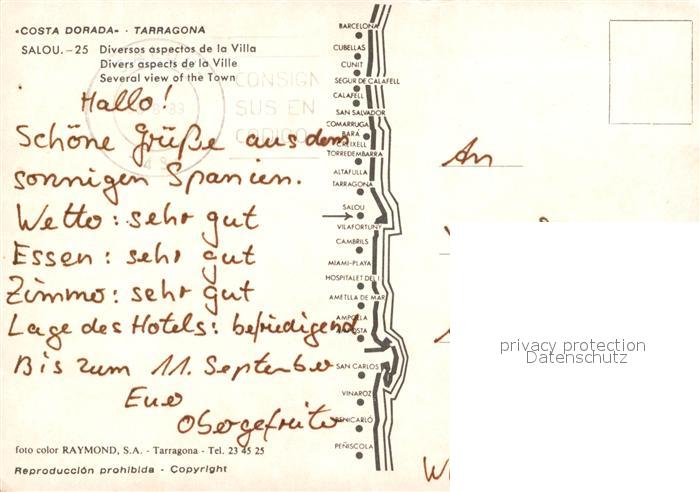 «COSTA DORADA» · TARRAGONA
SALOU. – 25 Diversos aspectos de la Villa
Divers aspects de la Ville
Several view of the Town
CONSIGN
SUS EN
Hallo!
Schöne Grüße aus dem
sonnigen Spanien.
Wetter: sehr gut
Essen: sehr gut
Zimmer: sehr gut
Lage des Hotels: befriedigend
Bis zum 11. September
Euer
Obergefreiter
foto color RAYMOND, S.A. - Tarragona - Tel. 23 45 25
Reproducción prohibida - Copyright
BARCELONA
CUBELLAS
CUNIT
SEGUR DE CALAFELL
CALAFELL
SAN SALVADOR
COMARRUGA
BARÁ
CREIXELL
TORREDEMBARRA
ALTAFULLA
TARRAGONA
SALOU
VILAFORTUNY
CAMBRILS
MIAMI-PLAYA
HOSPITALET DEL I.
AMETLLA DE MAR
AMPOLLA
SAN CARLOS
VINAROZ
BENICARLÓ
PEÑISCOLA
An
privacy protection
Datenschutz